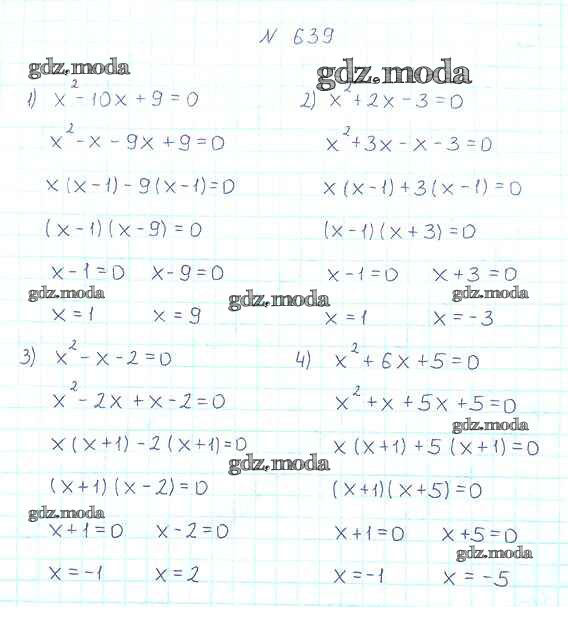 № 639
gdz.moda
gdz.moda
1) x² - 10x + 9 = 0
x² - x - 9x + 9 = 0
x (x - 1) - 9 (x - 1) = 0
(x - 1) (x - 9) = 0
x - 1 = 0 x - 9 = 0
gdz.moda
x = 1 x = 9
2) x² + 2x - 3 = 0
x² + 3x - x - 3 = 0
x (x - 1) + 3 (x - 1) = 0
(x - 1) (x + 3) = 0
x - 1 = 0 x + 3 = 0
gdz.moda
gdz.moda
x = 1 x = -3
3) x² - x - 2 = 0
x² - 2x + x - 2 = 0
x (x + 1) - 2 (x + 1) = 0
gdz.moda
(x + 1) (x - 2) = 0
gdz.moda
x + 1 = 0 x - 2 = 0
x = -1 x = 2
4) x² + 6x + 5 = 0
x² + x + 5x + 5 = 0
gdz.moda
x (x + 1) + 5 (x + 1) = 0
(x + 1) (x + 5) = 0
x + 1 = 0 x + 5 = 0
gdz.moda
x = -1 x = -5